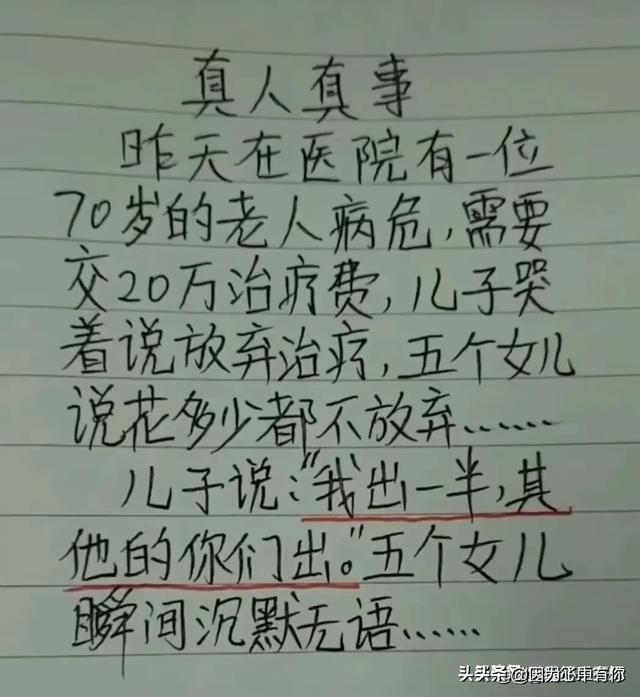 真人真事
昨天在医院有一位
70岁的老人病危,需要
交20万治疗费,儿子哭
着说放弃治疗,五个女儿
说花多少都不放弃......
儿子说:"我出一半,其
他的你们出。"五个女儿
瞬间沉默无语......
头条